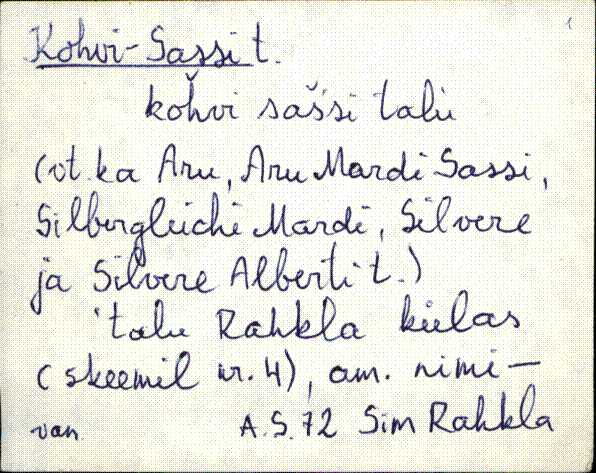 Kohvi-Sassi t.
kohvi sašsi talu
(vt. ka Aru, Aru Mardi Sassi,
Silbergleichi Mardi, Silvere
ja Silvere Alberti t.)
'talu Rahkla külas
(skeemil nr. 4), am. nimi —
van. A.S. 72 Sim Rahkla